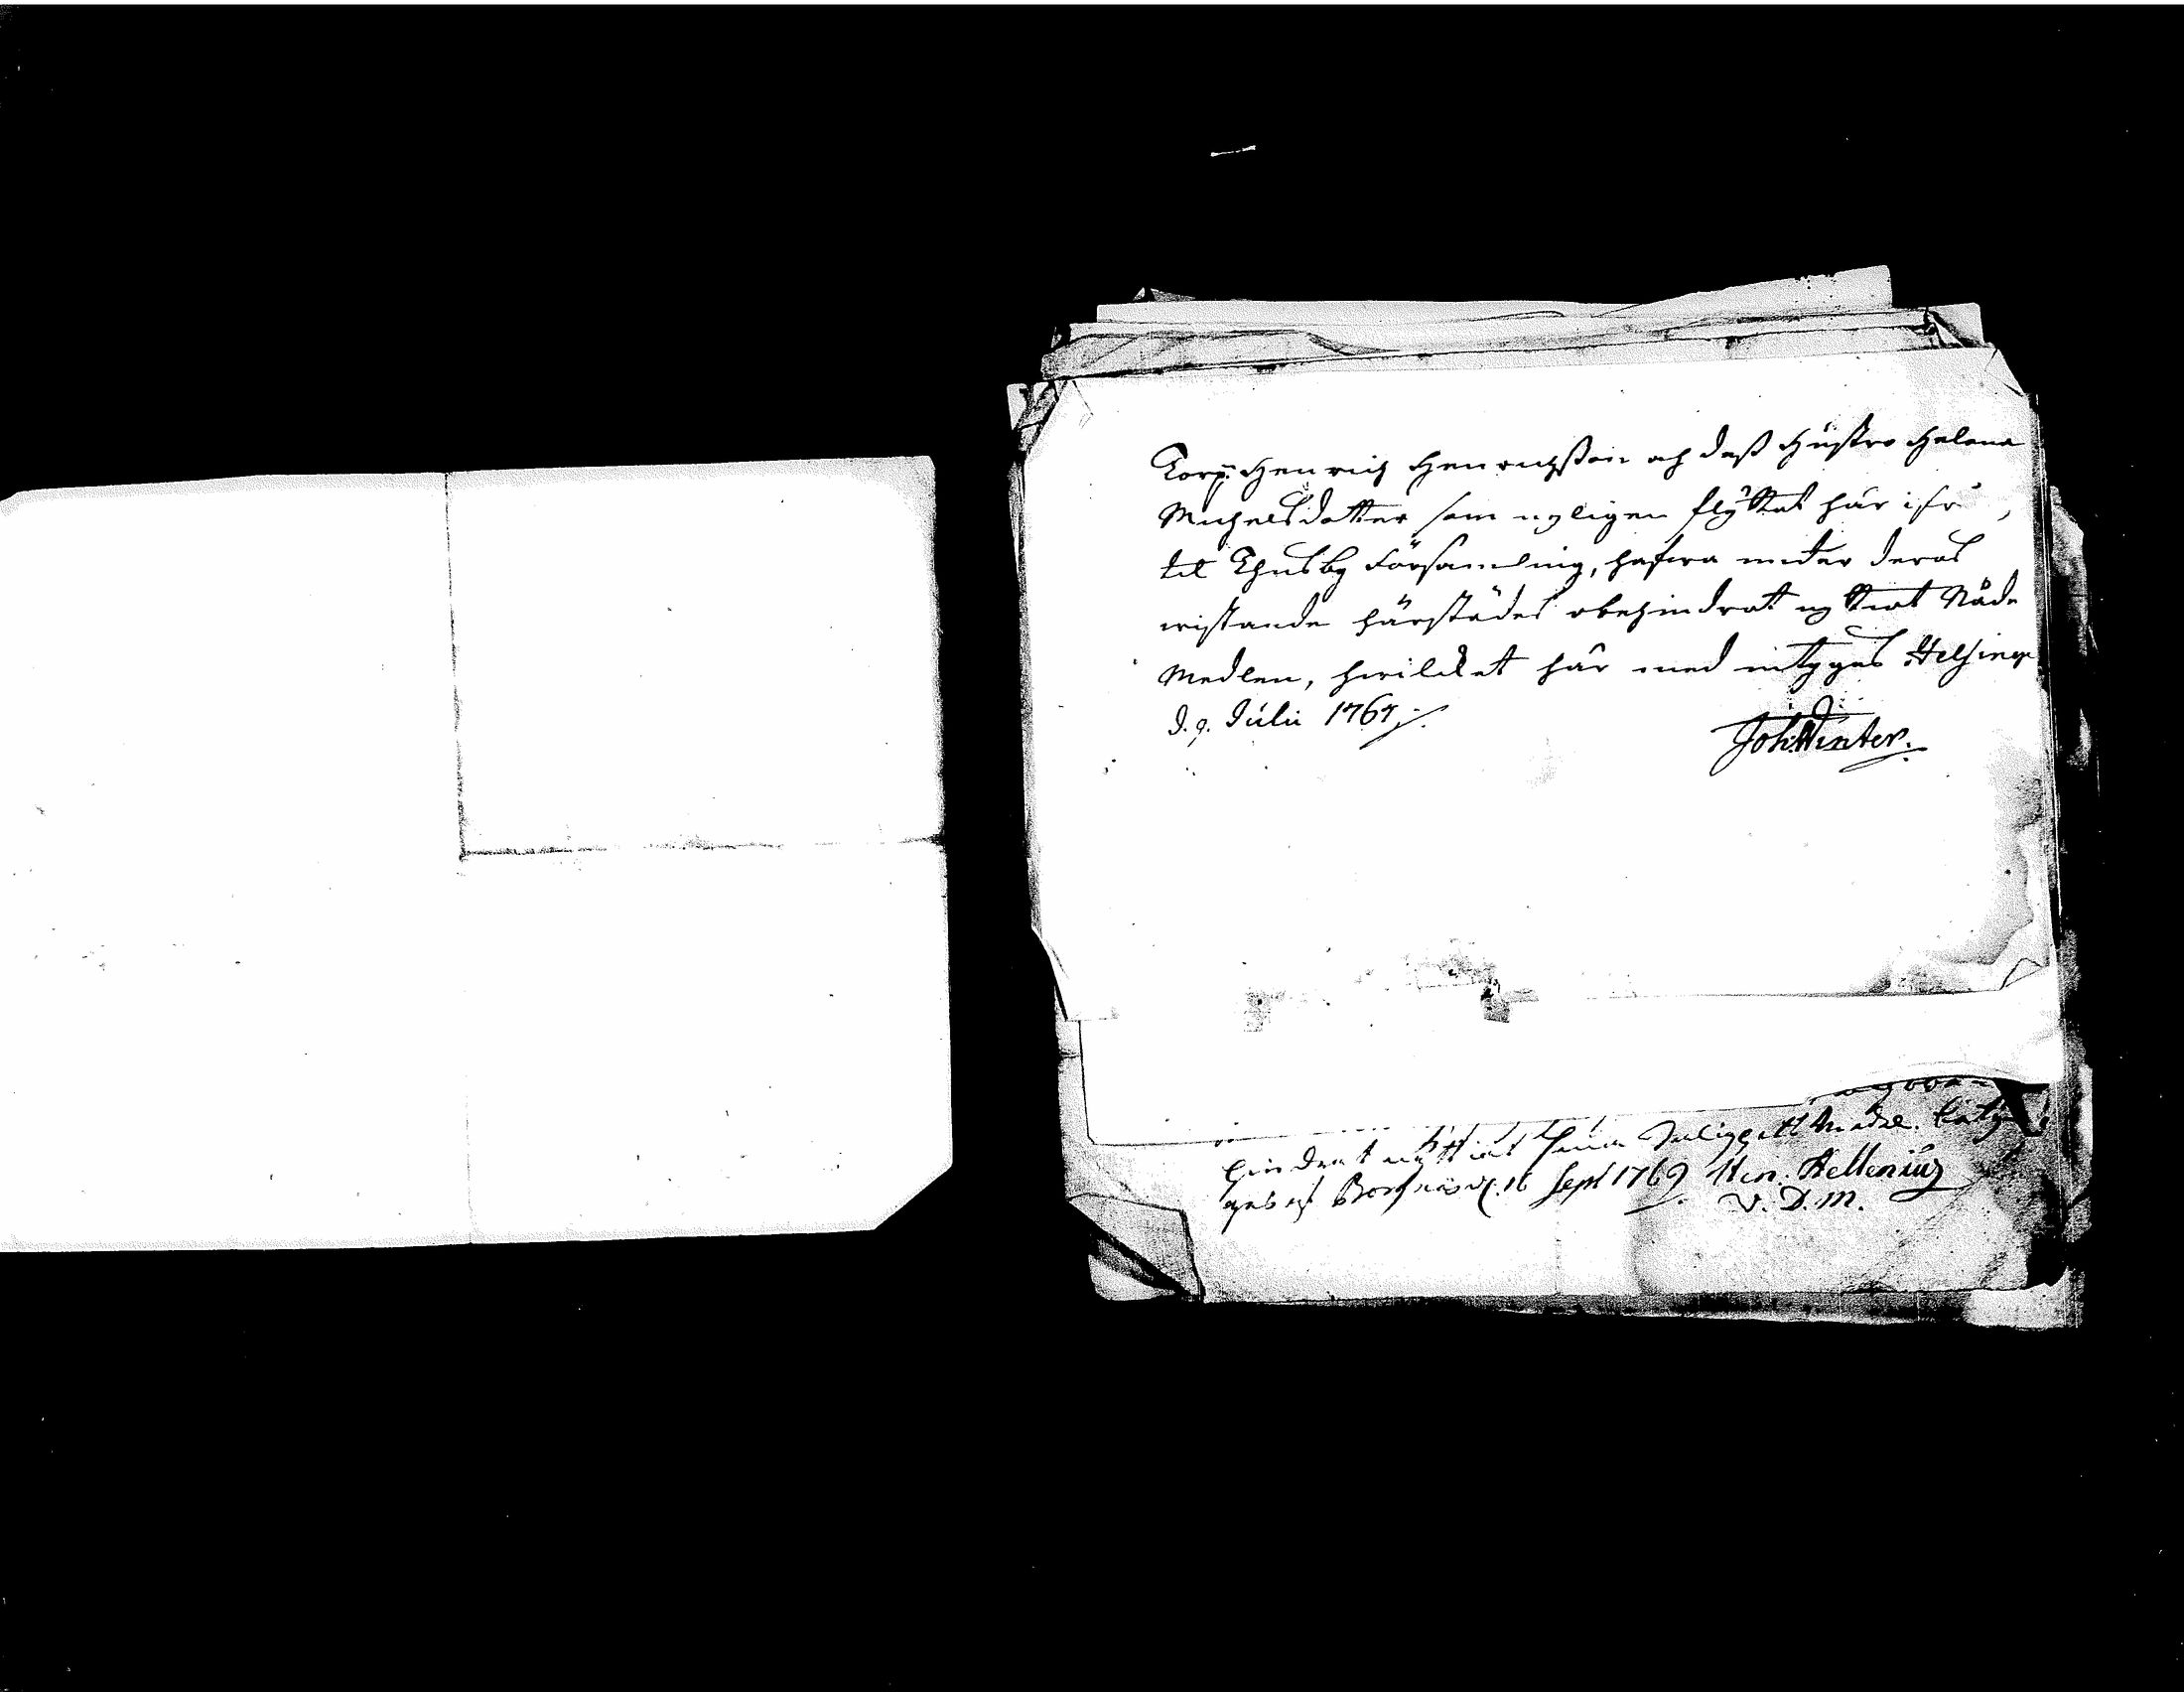 Torp. Henrich Henrichsson och dess Hustro Helena
Michelsdotter som nyligen flyttat här ifrå,
til Thusby Församling, hafwa under deras
wistande härstädes obehindrat nyttiat Nåde
Medlen, hwilcket här med intygas Helsinge
d. 9. Julii 1767
Joh Winter.
hindrat nyttiat sina Saliggh. Medel. betyg
gas af Borgnäs d. 16 Sept 1769 Hen. Hellenius
V. D. M.